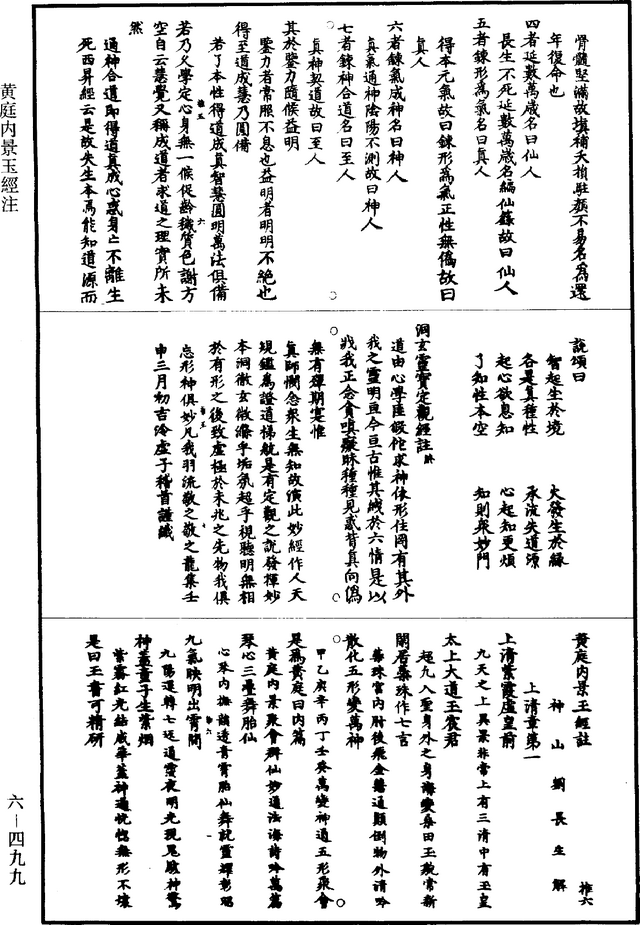 黄庭内景玉經注
骨髓堅滿故填補夭損駐顏不易名為還
年復命也
四者延數萬歲名曰仙人
長生不死延數萬歲名編仙籙故曰仙人
五者鍊形為氣名曰真人
得本元氣故曰鍊形為氣正性無偽故曰
真人
六者鍊氣成神名曰神人
真氣通神陰陽不測故曰神人
七者鍊神合道名曰至人
真神契道故曰至人
其於鑒力隨候益明
鑒力者常照不息也益明者明明不絕也
得至道成慧乃圓備
若了本性得道成真智慧圓明萬法俱備
若乃久學定心身無一候促齡穢質色謝方
空自云慧覺又稱成道者求道之理實所未
然
通神合道即得道真成心惑身亡不離生
死西昇經云是故失生本焉能知道源而
說頌曰
智起生於境 火發生於緣
各是真種性 承流失道源
起心欲息知 心起知更煩
了知性本空 知則眾妙門
洞玄靈寶定觀經註
道由心學匪假佗求神依形住罔有其外
我之靈明亘今亘古惟其緘於六情是以
戕我正念貪嗔癡昧種種見惑背真向偽
無有殫期寔惟
真師憫念眾生無知故演此妙經作人天
規鑑為證道梯航是有定觀之說發揮妙
本洞徹玄微滌乎垢氛超乎視聽明無相
於有形之後致虛極於未兆之先物我俱
忘形神俱妙凡我羽流敬之敬之龍集壬
申三月初吉泠虛子稽首謹識
黄庭内景玉經註 推六
神山劉長生解
上清章第一
上清紫霞虛皇前
九天之上異景非常上有三清中有玉皇
太上大道玉宸君
超九入聖身外之身海變桑田玉貌常新
閑居蘂珠作七言
蘂珠宮內肘後飛金籌通顛倒物外清吟
散化五形變萬神
甲乙庚辛丙丁壬癸萬變神通五形聚會
是為黄庭曰内篇
黄庭内景聚會群仙妙通法海詩吟萬篇
琴心三疊舞胎仙
心琴內撫韻道青霄胎仙舞訖靈耀彰昭
九氣映明出霄間
九陽運轉七返通霞夜明光現鬼駭神驚
神蓋童子生紫烟
紫霧紅光結成華蓋神通恍惚無形不壞
是曰玉書可精研
六—四九九